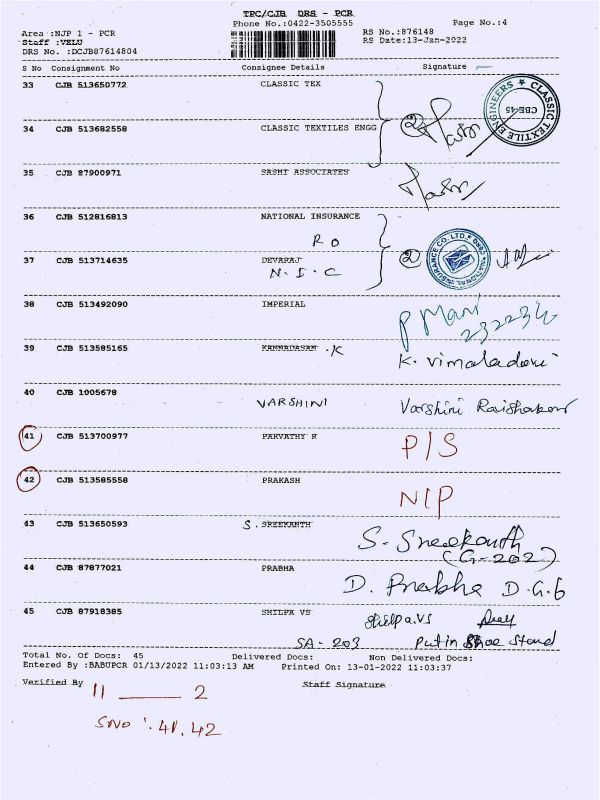 TPC/CJB DRS - PCR
Phone No.:0422-3505555
Page No.:4
Area :NJP 1 - PCR
RS No.:876148
Staff :VELU
RS Date:13-Jan-2022
DRS No. :DCJB87614804
S No Consignment No Consignee Details Signature
33 CJB 513650772 CLASSIC TEX
CLASSIC TEXTILE ENGINEERS ★ CBE-45
34 CJB 513682558 CLASSIC TEXTILES ENGG 2
35 CJB 87900971 SASHI ASSOCIATES
36 CJB 512816813 NATIONAL INSURANCE
RO
2
37 CJB 513714635 DEVARAJ
N.I.C
38 CJB 513492090 IMPERIAL P Mani
39 CJB 513585165 KANNADASAN .K K. Vimaladevi
40 CJB 1005678 VARSHINI Varshini
41 CJB 513700977 PARVATHY R P/S
42 CJB 513585558 PRAKASH N/P
43 CJB 513650593 S. SREEKANTH S. Sreekanth
(G-202)
44 CJB 87877021 PRABHA D. Prabha D.G.6
45 CJB 87918385 SHILPA VS Shilpa.VS
SA-203 Put in Shoe Stand
Total No. Of Docs: 45 Delivered Docs: Non Delivered Docs:
Entered By :BABUPCR 01/13/2022 11:03:13 AM Printed On: 13-01-2022 11:03:37
Verified By Staff Signature
11 — 2
SNO : 41, 42